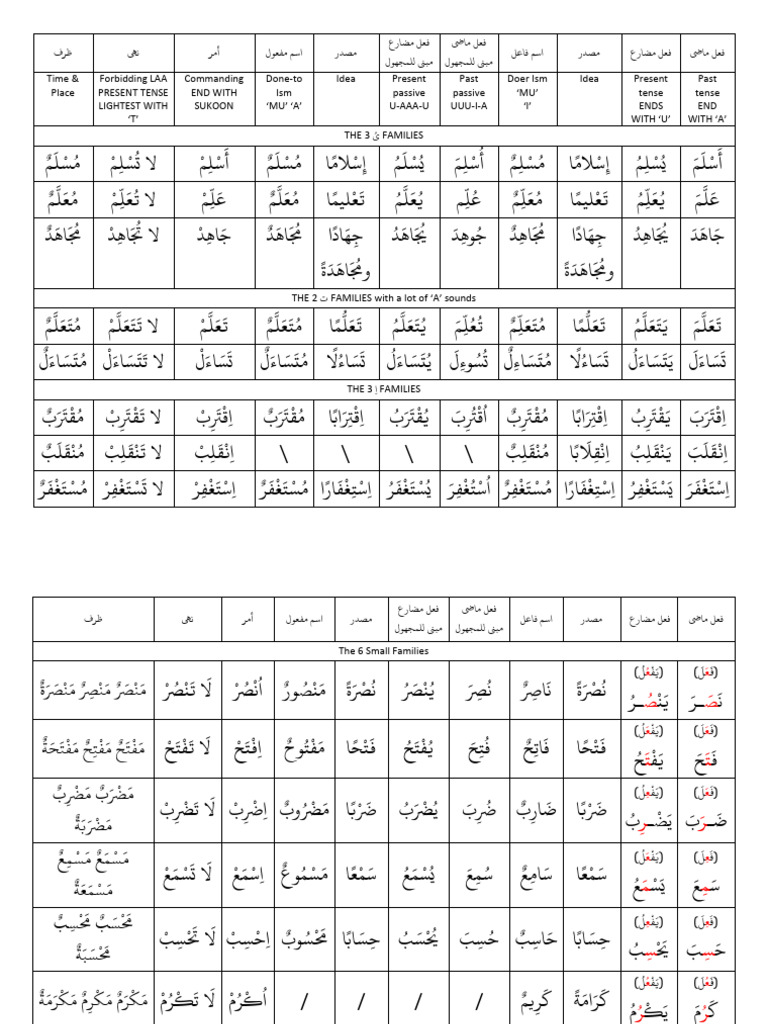 فعل ماضى فعل مضارع مصدر اسم فاعل فعل ماضى مبنى للمجهول فعل مضارع مبنى للمجهول مصدر اسم مفعول أمر نهى ظرف
Time & Place Forbidding LAA PRESENT TENSE LIGHTEST WITH ‘T’ Commanding END WITH SUKOON Done-to Ism ‘MU’ ‘A’ Idea Present passive U-AAA-U Past passive UUU-I-A Doer Ism ‘MU’ ‘I’ Idea Present tense ENDS WITH ‘U’ Past tense END WITH ‘A’
THE 3 ئ FAMILIES
أَسْلَمَ يُسْلِمُ إِسْلامًا مُسْلِمٌ أُسْلِمَ يُسْلَمُ إِسْلامًا مُسْلَمٌ أَسْلِمْ لا تُسْلِمْ مُسْلَمٌ
عَلَّمَ يُعَلِّمُ تَعْليمًا مُعَلِّمٌ عُلِّمَ يُعَلَّمُ تَعْليمًا مُعَلَّمٌ عَلِّمْ لا تُعَلِّمْ مُعَلَّمٌ
جَاهَدَ يُجَاهِدُ جِهَادًا ومُجَاهَدَةً مُجَاهِدٌ جُوهِدَ يُجَاهَدُ جِهَادًا ومُجَاهَدَةً مُجَاهَدٌ جَاهِدْ لا تُجَاهِدْ مُجَاهَدٌ
THE 2 ت FAMILIES with a lot of ‘A’ sounds
تَعَلَّمَ يَتَعَلَّمُ تَعَلُّمًا مُتَعَلِّمٌ تُعُلِّمَ يُتَعَلَّمُ تَعَلُّمًا مُتَعَلَّمٌ تَعَلَّمْ لا تَتَعَلَّمْ مُتَعَلَّمٌ
تَسَاءَلَ يَتَسَاءَلُ تَسَاءُلًا مُتَسَاءِلٌ تُسُوءِلَ يُتَسَاءَلُ تَسَاءُلًا مُتَسَاءَلٌ تَسَاءَلْ لا تَتَسَاءَلْ مُتَسَاءَلٌ
THE 3 اِ FAMILIES
اِقْتَرَبَ يَقْتَرِبُ اِقْتِرَابًا مُقْتَرِبٌ اُقْتُرِبَ يُقْتَرَبُ اِقْتِرَابًا مُقْتَرَبٌ اِقْتَرِبْ لا تَقْتَرِبْ مُقْتَرَبٌ
اِنْقَلَبَ يَنْقَلِبُ اِنْقِلَابًا مُنْقَلِبٌ \ \ \ \ اِنْقَلِبْ لا تَنْقَلِبْ مُنْقَلَبٌ
اِسْتَغْفَرَ يَسْتَغْفِرُ اِسْتِغْفَارًا مُسْتَغْفِرٌ اُسْتُغْفِرَ يُسْتَغْفَرُ اِسْتِغْفَارًا مُسْتَغْفَرٌ اِسْتَغْفِرْ لا تَسْتَغْفِرْ مُسْتَغْفَرٌ
فعل ماضى فعل مضارع مصدر اسم فاعل فعل ماضى مبنى للمجهول فعل مضارع مبنى للمجهول مصدر اسم مفعول أمر نهى ظرف
The 6 Small Families
(فَعَلَ) (يَفْعُلُ)
نَصَـرَ يَنْصُـرُ نُصْرَةً نَاصِرٌ نُصِرَ يُنْصَرُ نُصْرَةً مَنْصُورٌ اُنْصُرْ لَا تَنْصُرْ مَنْصَرٌ مَنْصِرٌ مَنْصَرَةٌ
(فَعَلَ) (يَفْعَلُ)
فَتَحَ يَفْتَحُ فَتْحًا فَاتِحٌ فُتِحَ يُفْتَحُ فَتْحًا مَفْتُوحٌ اِفْتَحْ لَا تَفْتَحْ مَفْتَحٌ مَفْتِحٌ مَفْتَحَةٌ
(فَعَلَ) (يَفْعِلُ)
ضَـرَبَ يَضْـرِبُ ضَرْبًا ضَارِبٌ ضُرِبَ يُضْرَبُ ضَرْبًا مَضْرُوبٌ اِضْرِبْ لَا تَضْرِبْ مَضْرَبٌ مَضْرِبٌ مَضْرَبَةٌ
(فَعِلَ) (يَفْعَلُ)
سَمِعَ يَسْمَعُ سَمْعًا سَامِعٌ سُمِعَ يُسْمَعُ سَمْعًا مَسْمُوعٌ اِسْمَعْ لَا تَسْمَعْ مَسْمَعٌ مَسْمِعٌ مَسْمَعَةٌ
(فَعِلَ) (يَفْعِلُ)
حَسِبَ يَحْسِبُ حِسَابًا حَاسِبٌ حُسِبَ يُحْسَبُ حِسَابًا مَحْسُوبٌ اِحْسِبْ لَا تَحْسِبْ مَحْسَبٌ مَحْسِبٌ مَحْسَبَةٌ
(فَعُلَ) (يَفْعُلُ)
كَرُمَ يَكْرُمُ كَرَامَةً كَرِيمٌ / / / / اُكْرُمْ لَا تَكْرُمْ مَكْرَمٌ مَكْرِمٌ مَكْرَمَةٌ